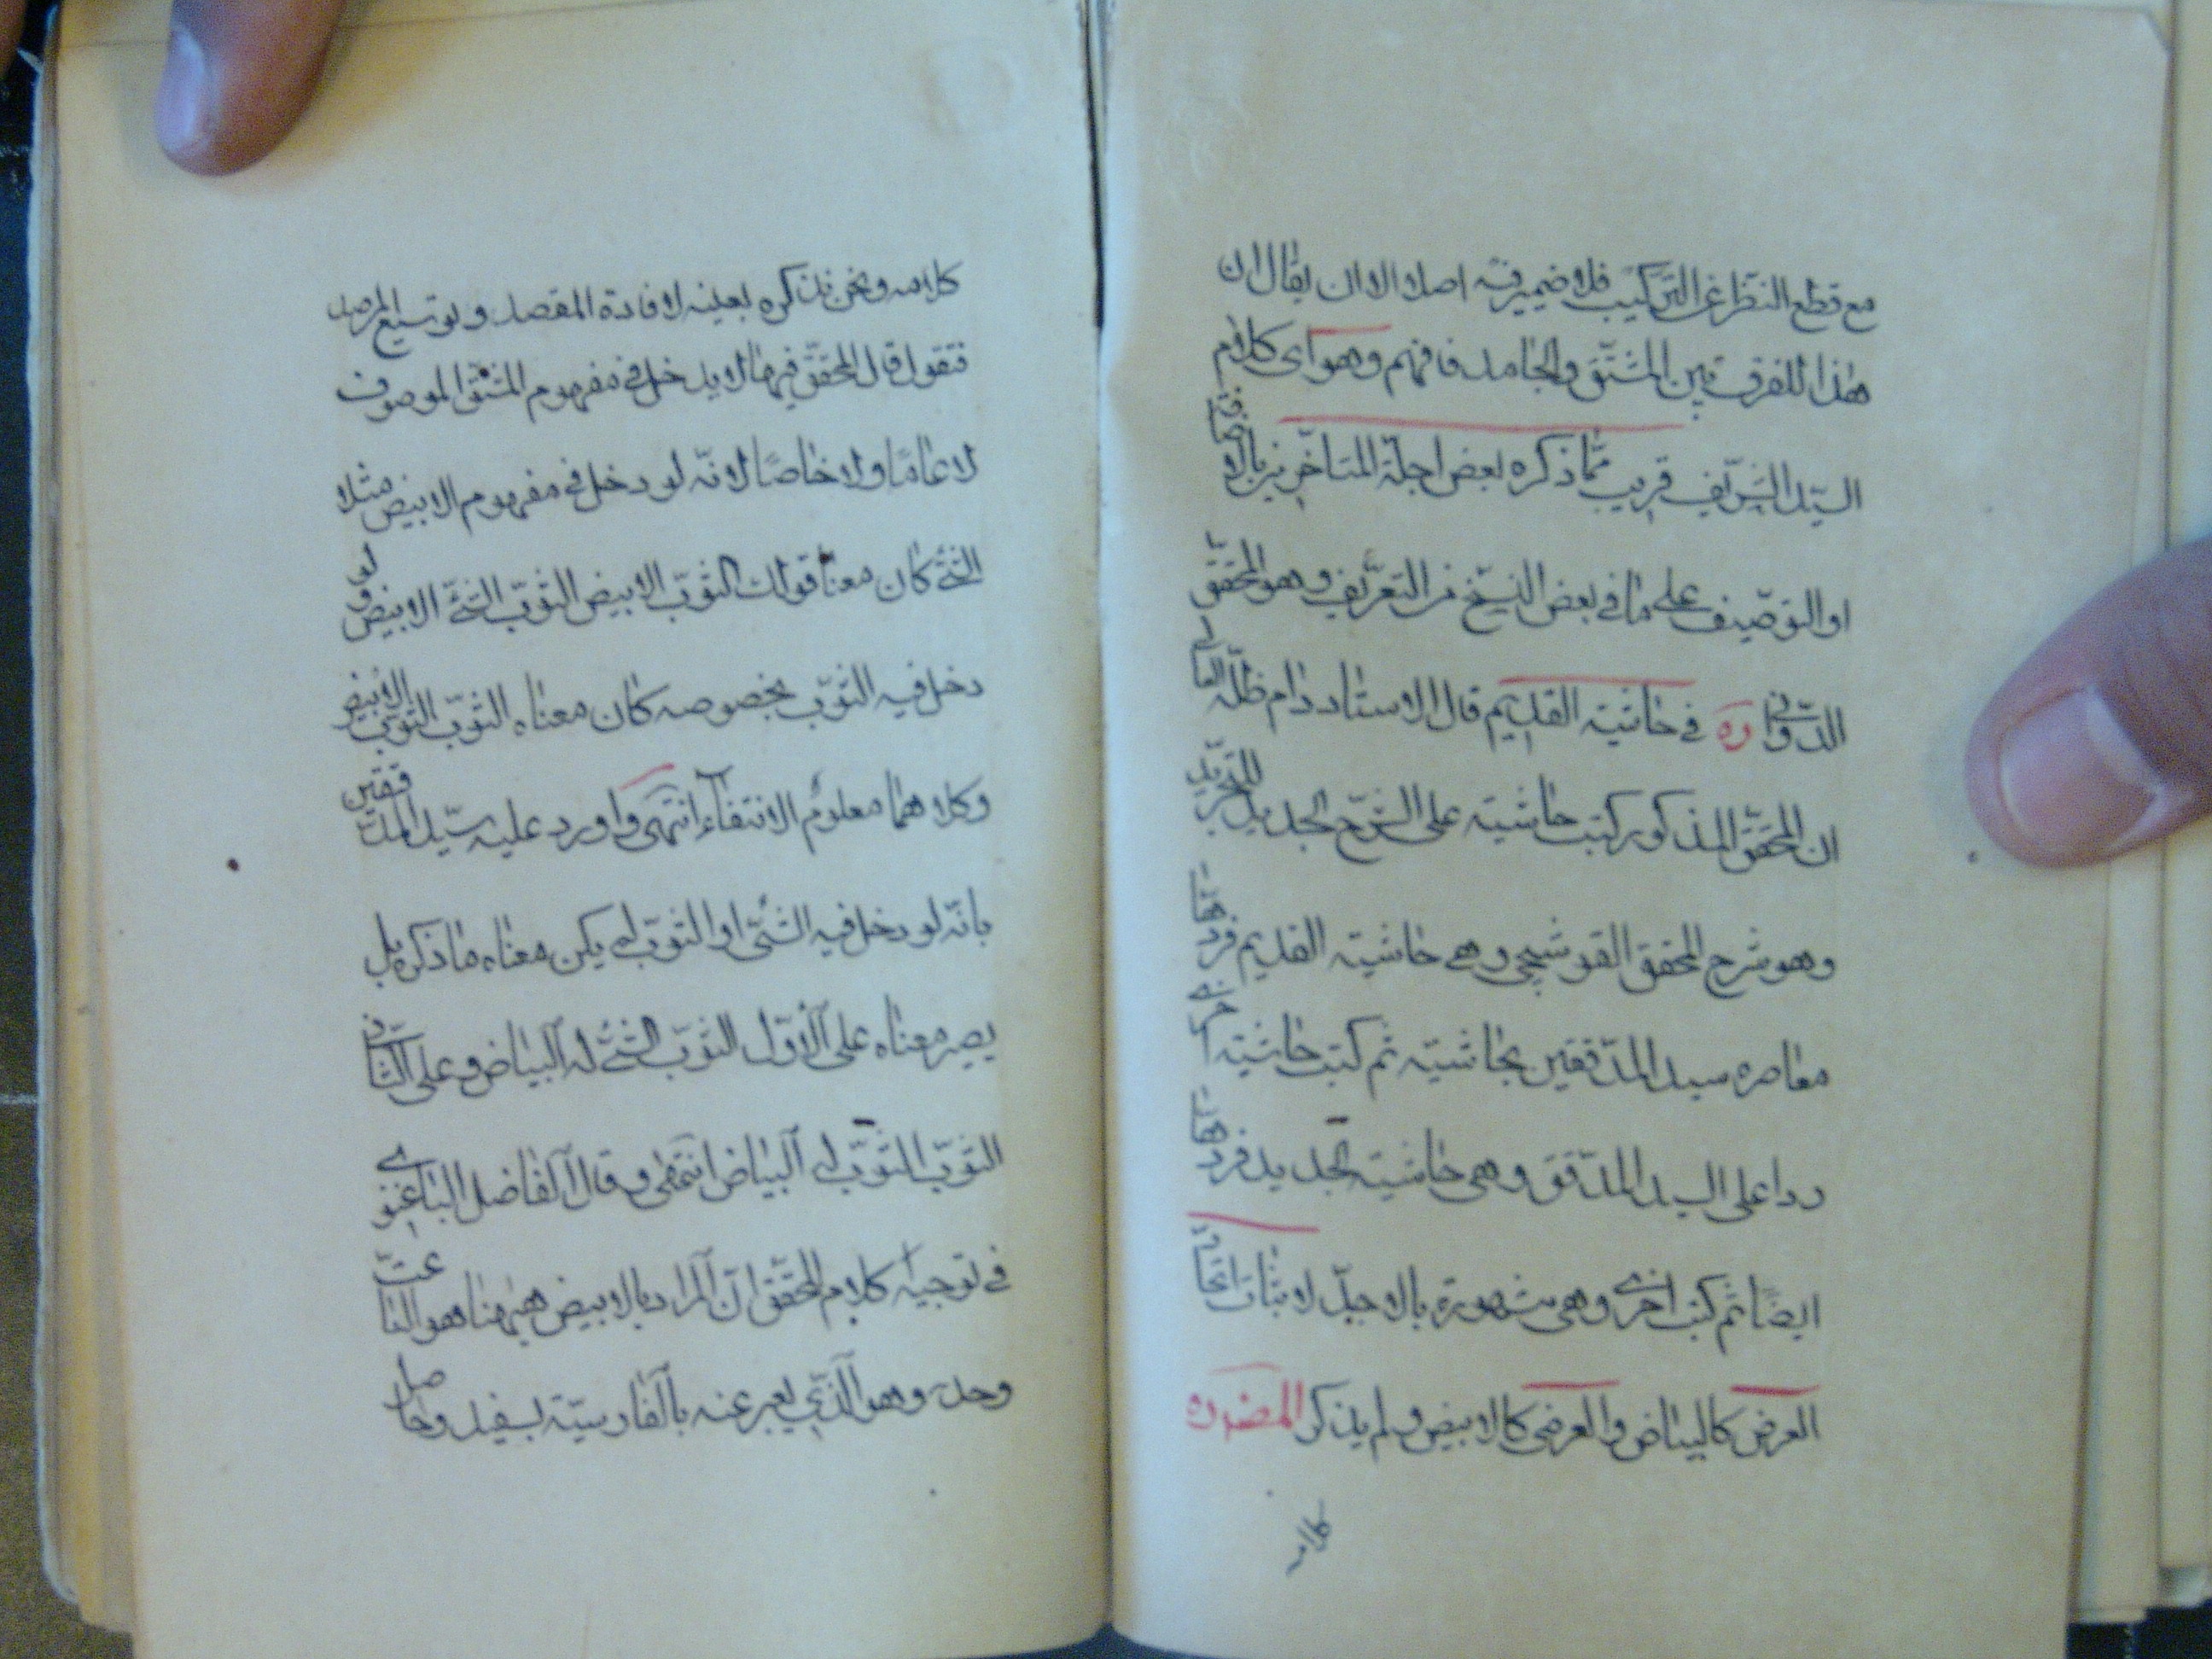 مع قطع النظر عن التركيب فلا ضمير فيه اصلا الا ان يقال ان
هذا للفرق بين المشتق والجامد فافهم وهو اى كلام
السيد الشريف قريب مما ذكره بعض اجلة المتاخرين بالاضافة
او التوصيف على ما فى بعض النسخ من التعريف وهو المحقق
الدوانى ره فى حاشيته القديم قال الاستاد دام ظله العالى
ان المحقق المذكور كتب حاشيته على الشرح الجديد للتجريد
وهو شرح المحقق القوشچى وهى حاشيته القديم فرد عليه
معاصره سيد المدققين بحاشيته ثم كتب حاشيته اخرى
ردا على السيد المدقق وهى حاشيته الجديد فرد عليه
ايضا ثم كتب اخرى وهى مشهورة بالاجد لاثبات اتحاد
العرض كالبياض والعرضى كالابيض ولم يذكر المص ره
كلامه
كلامه ونحن نذكره بعينه لافادة المقصد وتوسيع المرصد
فنقول قال المحقق فيها لا يدخل فى مفهوم المشتق الموصوف
لا عاما ولا خاصا لانه لو دخل فى مفهوم الابيض مثلا
الشئ كان معنا قولك الثوب الابيض الثوب الشئ الابيض ولو
دخل فيه الثوب بخصوصه كان معناه الثوب الثوب الابيض
وكلاهما معلوم الانتفاء انتهى واورد عليه سيد المدققين
بانه لو دخل فيه الشئ او الثوب لم يكن معناه ما ذكره بل
يصير معناه على الاول الثوب الشئ له البياض وعلى الثانى
الثوب الثوب له البياض انتهى وقال الفاضل الباغنوى
فى توجيه كلام المحقق ان المراد بالابيض هيهنا هو الناعت
وحده وهو الذى يعبر عنه بالفارسية بسفيد وحاصل